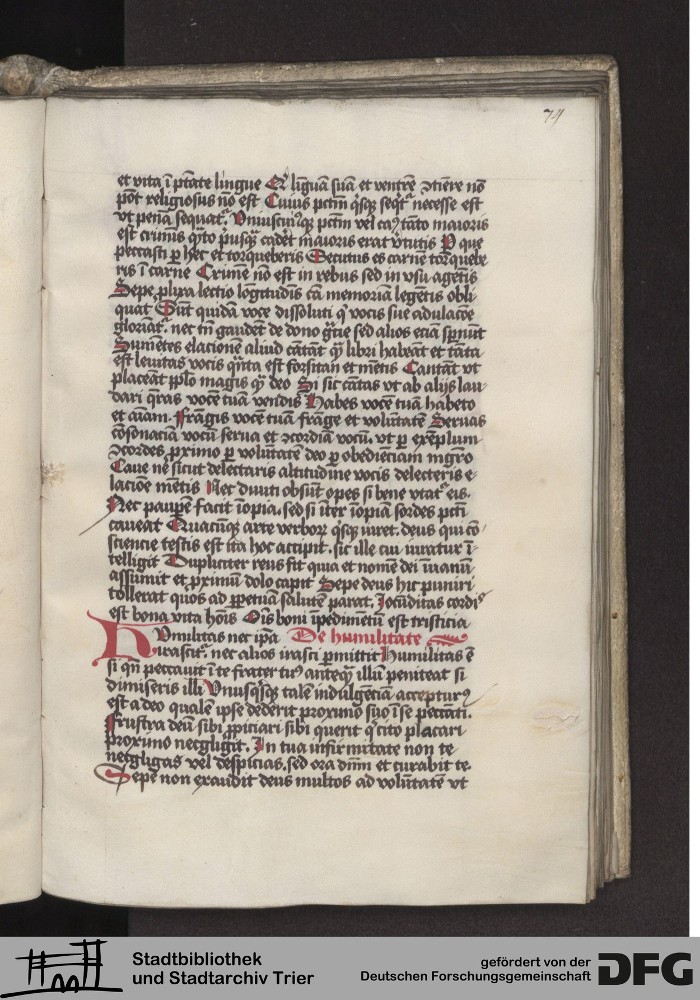 74
et vita ī ptāte lingue Qr̄ līguā suā et ventrē ꝯtīere nō
pōt religiosus nō est Cuius pctm̄ qͥsqͣ seqtͬ necesse est
vt penā sequatͬ. Vniuscuiꝰqꝫ pctm̄ vel caꝫ tāto maioris
est crimīs qͣto pͥusqͣ cadēt maioris erat vͭtutis P que
peccasti ꝑ hec et torqueberis Secutus es carnē torquebe
ris ī carne Crimē nō est in rebus sed in vsu agētis
Sepe ꝓlixa lectio lōgitudīs cā memoriā legētis obli
quat Sūt quidā voce dissoluti qͥ vocis sue adulacōe
gloriātͬ. nec tn̄ gaudēt de dono grīe sed alios eciā spnūt
Sumētes elacionē aliud cātāt qͣ libri habeāt et tāta
est leuitas vocis qͣnta est forsitan et mētis Cantāt vt
placeāt pplo magis qͣ deo Si sic cātas vt ab alijs lau
dari qͣras vocē tuā vendis Habes vocē tuā habeto
et aīam. Frāgis vocē tuā frāge et volūtatē Seruas
cōsonaciā vocū serua et ꝯcordiā vocū. vt ꝑ exēplum
ꝯcordes ꝓximo ꝑ volūtatē deo ꝑ obedienciam mgr̄o
Caue ne sicut delectaris altitudine vocis delecteris e
lacioē mētis Nec diuiti obsūt opes si bene vtatͬ eis.
Nec pauperē facit īopia. sed si īter īopiā sordes pcti
caueat Quacūqꝫ arte verborꝫ qͥsqꝫ iuret. deus qui cō
sciencie testis est ita hoc accipit. sic ille cui iuratur ī
telligit Dupliciter reus fit quia et nomē dei ī vanū
assumit et ꝓximū dolo capit Sepe deus hic puniri
tollerat quos ad ꝑpetuā salutē parat. Iocūditas cordiꝰ
est bona vita hoīs Oīs boni īpedimētū est tristicia
Vmilitas nec ip̄a De humilitate
irascitͬ. nec alios irasci ꝑmittit Humilitas ē
si qn̄ peccauit ī te frater tuꝰ anteqͣ illū peniteat si
dimiseris illi Vnusqͥsqꝫ talē indulgēciā accepturꝰ
est a deo qualē ipse dederit proximo suo ī se peccāti.
Frustra deū sibi ꝓpiciari sibi querit qͥ cito placari
proximo necgligit. In tua infirmitate non te
necgligas vel despicias. sed ora dn̄m et curabit te.
Sepe non exaudit deus multos ad volūtatē vt
Stadtbibliothek
und Stadtarchiv Trier
gefördert von der
Deutschen Forschungsgemeinschaft
DFG